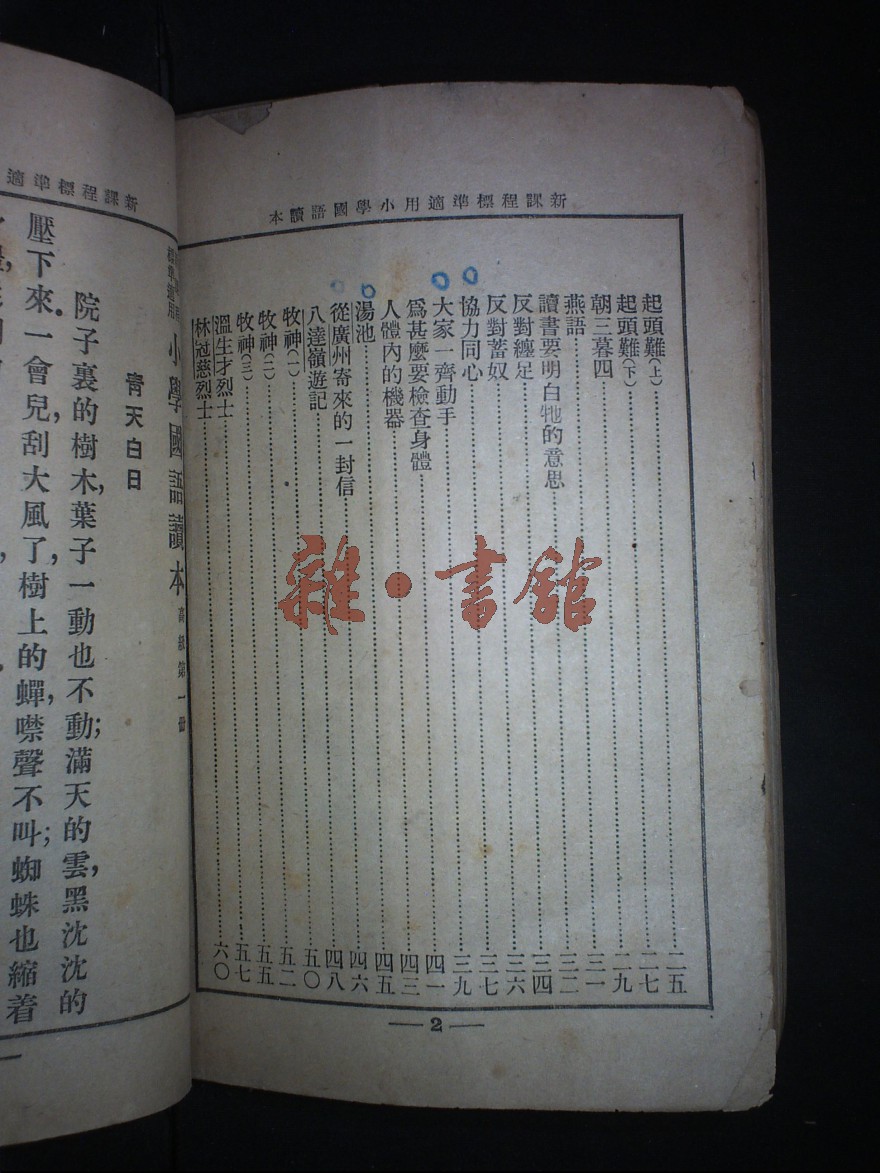 新課程標準適用小學國語讀本
起頭難(上)……二五
起頭難(下)……二七
朝三暮四……二九
燕語……三一
讀書要明白牠的意思……三二
反對纏足……三四
反對蓄奴……三六
協力同心……三七
大家一齊動手……三九
爲甚麼要檢查身體……四一
人體內的機器……四三
湯池……四五
從廣州寄來的一封信……四六
八達嶺遊記……四八
牧神(一)……五〇
牧神(二)……五二
牧神(三)……五五
溫生才烈士……五七
林冠慈烈士……六〇
— 2 —
雜·書館
新課程標準適
小學國語讀本 高級第一冊
青天白日
院子裏的樹木,葉子一動也不動;滿天的雲,黑沈沈的
壓下來。一會兒,刮大風了,樹上的蟬,噤聲不叫;蜘蛛也縮着